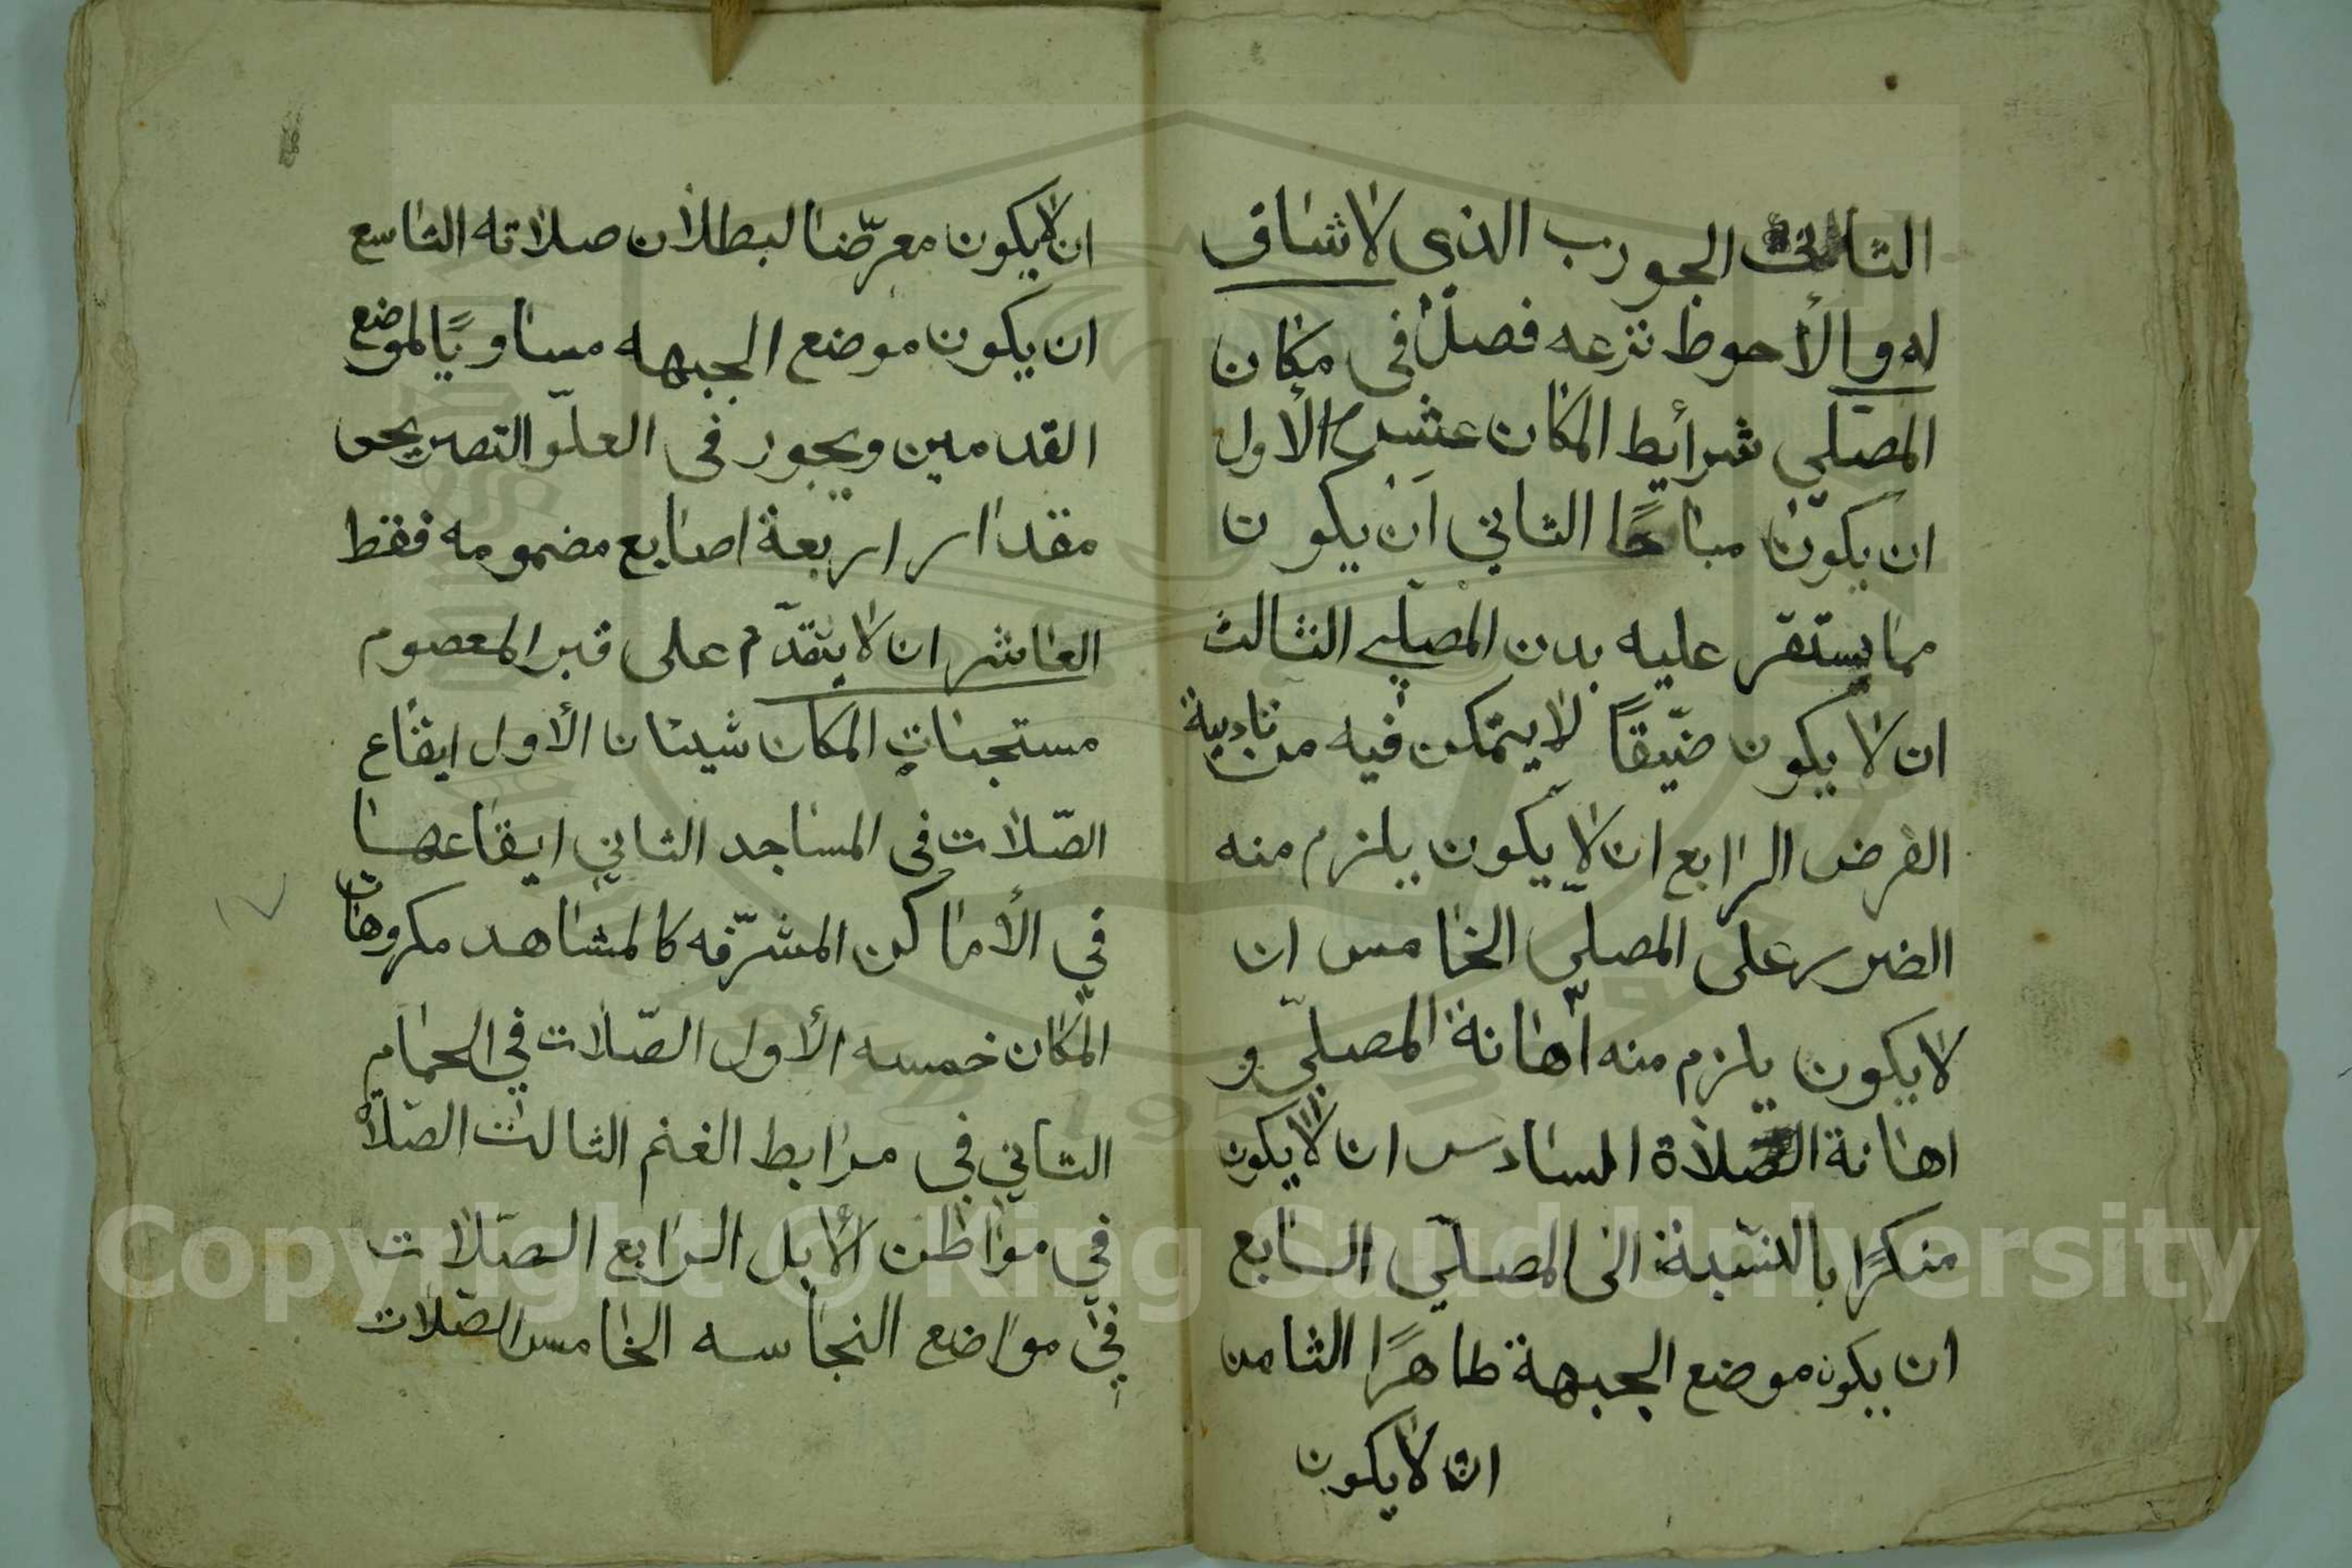 الثالث الجورب الذي لاشاق
له والأحوط نزعه فصل في مكان
المصلي شرأيط المكان عشرة الأول
ان يكون مباحًا الثاني ان يكون
مما يستقر عليه بدن المصلي الثالث
ان لا يكون ضيّقًا لا يتمكن فيه من تادية
الفرض الرابع ان لا يكون يلزم منه
الضرر على المصلّي الخامس ان
لا يكون يلزم منه اهانة المصلّي و
اهانة الصلاة السادس ان لا يكون
منكرًا بالنسبة الى المصلّي السابع
ان يكون موضع الجبهة طاهرًا الثامن
ان لا يكون
ان لا يكون معرّضا لبطلان صلاته التاسع
ان يكون موضع الجبهه مساويًا لموضع
القدمين ويجوز في العلوّ التصريحى
مقدار اربعة اصابع مضمومه فقط
العاشر ان لا يتقدّم على قبر المعصوم
مستحبات المكان شيئان الأول ايقاع
الصّلات في المساجد الثاني ايقاعها
في الأماكن المشرّفه كالمشاهد مكروهات
المكان خمسه الأول الصّلات في الحمام
الثاني في مرابط الغنم الثالث الصّلاة
في مواطن الأبل الرابع الصّلات
في مواضع النجاسه الخامس الصّلات
Copyright © King Saud University